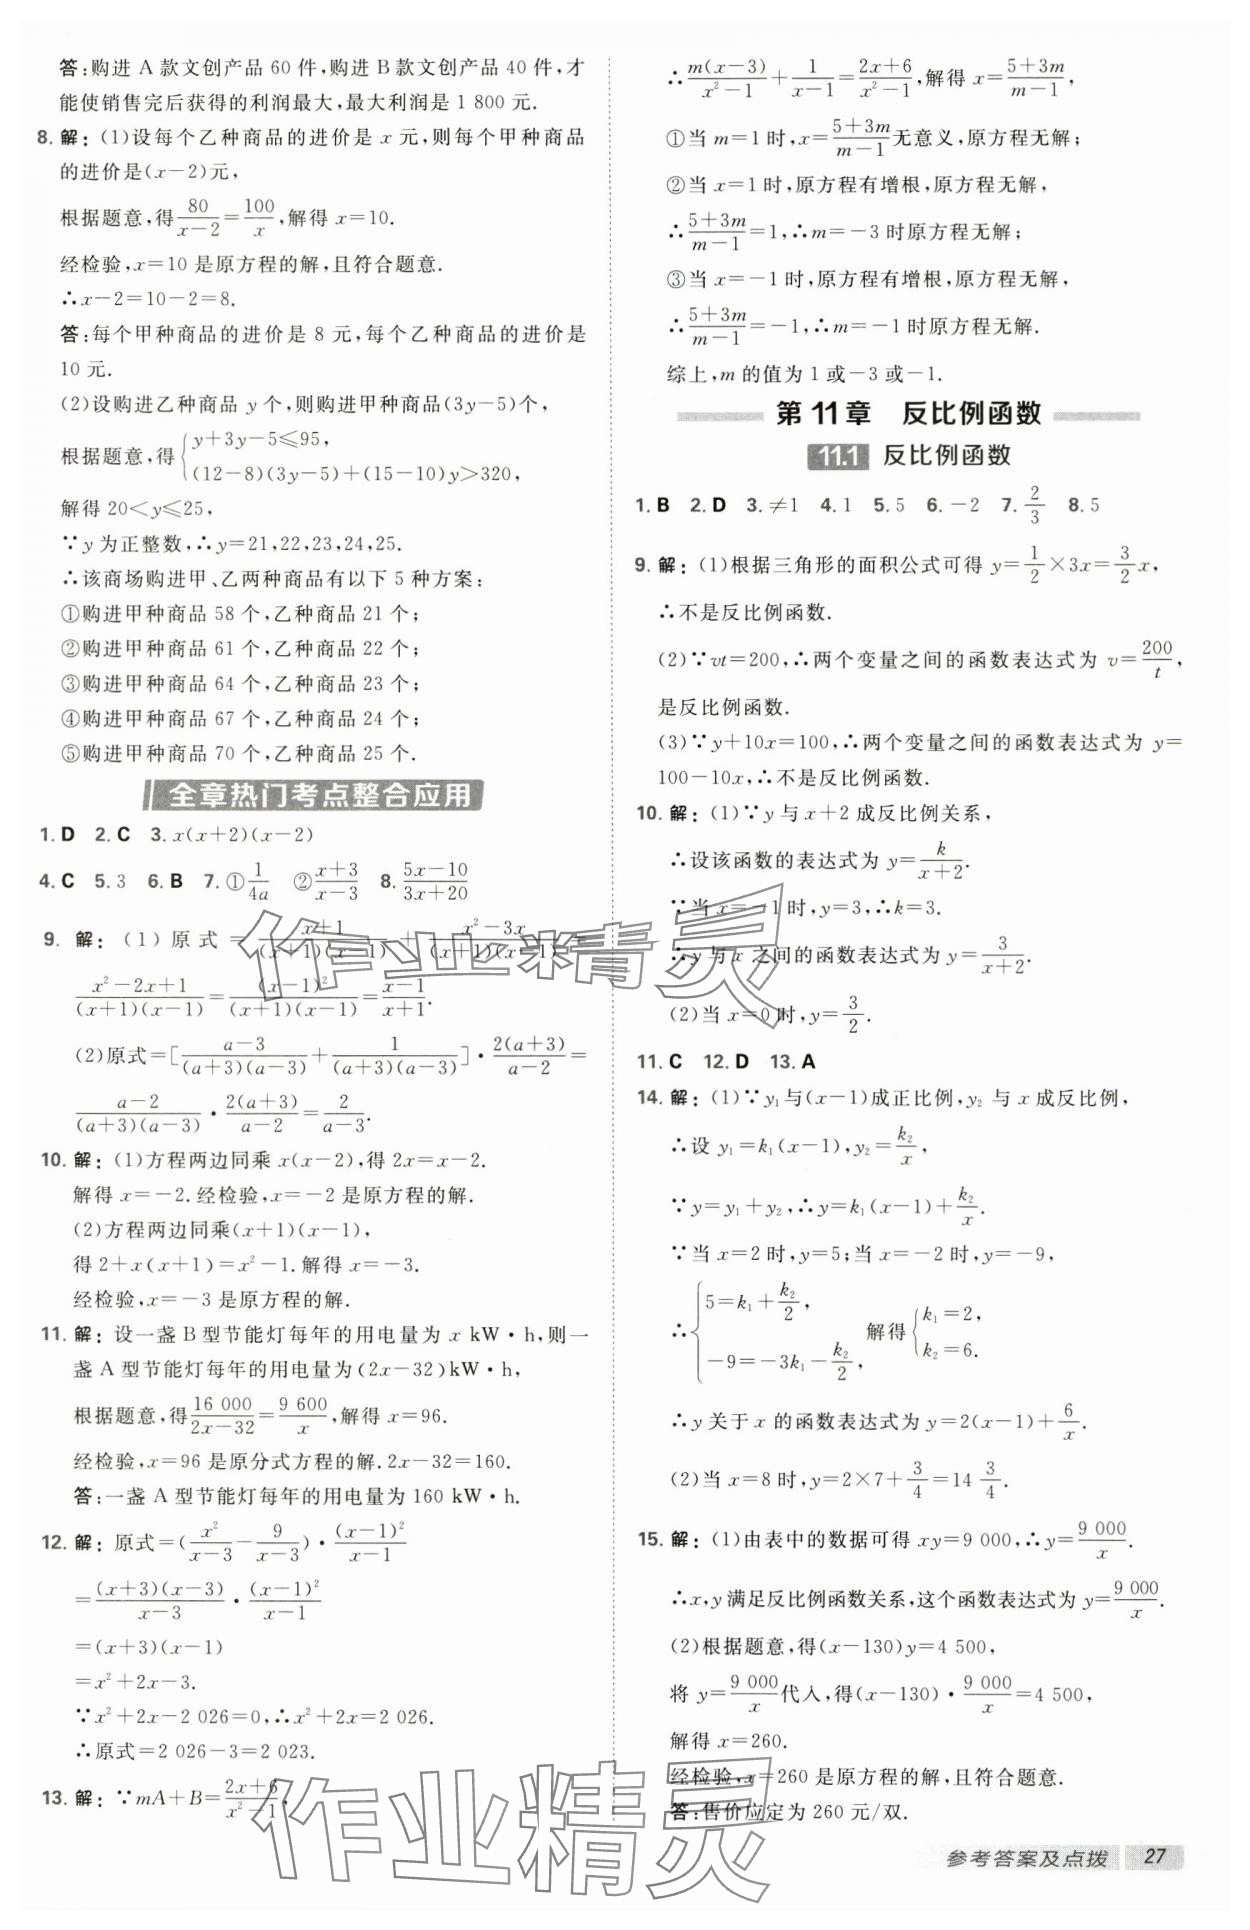 答:购进 A 款文创产品 60 件,购进 B 款文创产品 40 件,才
能使销售完后获得的利润最大,最大利润是 1 800 元.
8. 解:(1)设每个乙种商品的进价是 x 元,则每个甲种商品
的进价是(x-2)元,
根据题意,得80/(x-2)=100/x,解得 x=10.
经检验,x=10 是原方程的解,且符合题意.
∴x-2=10-2=8.
答:每个甲种商品的进价是 8 元,每个乙种商品的进价是
10 元.
(2)设购进乙种商品 y 个,则购进甲种商品(3y-5)个,
根据题意,得{y+3y-5≤95,
(12-8)(3y-5)+(15-10)y>320,
解得 20<y≤25,
∵y 为正整数,∴y=21,22,23,24,25.
∴该商场购进甲、乙两种商品有以下 5 种方案:
①购进甲种商品 58 个,乙种商品 21 个;
②购进甲种商品 61 个,乙种商品 22 个;
③购进甲种商品 64 个,乙种商品 23 个;
④购进甲种商品 67 个,乙种商品 24 个;
⑤购进甲种商品 70 个,乙种商品 25 个.
全章热门考点整合应用
1. D 2. C 3. x(x+2)(x-2)
4. C 5. 3 6. B 7. ①1/(4a) ②(x+3)/(x-3) 8. (5x-10)/(3x+20)
9. 解:(1)原式=(x+1)/((x+1)(x-1))+(x²-3x)/((x+1)(x-1))=
(x²-2x+1)/((x+1)(x-1))=(x-1)²/((x+1)(x-1))=(x-1)/(x+1).
(2)原式=[(a-3)/((a+3)(a-3))+1/((a+3)(a-3))]·2(a+3)/(a-2)=
(a-2)/((a+3)(a-3))·2(a+3)/(a-2)=2/(a-3).
10. 解:(1)方程两边同乘 x(x-2),得 2x=x-2.
解得 x=-2. 经检验,x=-2 是原方程的解.
(2)方程两边同乘(x+1)(x-1),
得 2+x(x+1)=x²-1. 解得 x=-3.
经检验,x=-3 是原方程的解.
11. 解:设一盏 B 型节能灯每年的用电量为 x kW·h,则一
盏 A 型节能灯每年的用电量为(2x-32)kW·h,
根据题意,得16 000/(2x-32)=9 600/x,解得 x=96.
经检验,x=96 是原分式方程的解. 2x-32=160.
答:一盏 A 型节能灯每年的用电量为 160 kW·h.
12. 解:原式=(x²/(x-3)-9/(x-3))·(x-1)²/(x-1)
=(x+3)(x-3)/(x-3)·(x-1)²/(x-1)
=(x+3)(x-1)
=x²+2x-3.
∵x²+2x-2 026=0,∴x²+2x=2 026.
∴原式=2 026-3=2 023.
13. 解:∵mA+B=(2x+6)/(x²-1),
∴m(x-3)/(x²-1)+1/(x-1)=(2x+6)/(x²-1),解得 x=(5+3m)/(m-1),
①当 m=1 时,x=(5+3m)/(m-1)无意义,原方程无解;
②当 x=1 时,原方程有增根,原方程无解,
∴(5+3m)/(m-1)=1,∴m=-3 时原方程无解;
③当 x=-1 时,原方程有增根,原方程无解,
∴(5+3m)/(m-1)=-1,∴m=-1 时原方程无解.
综上,m 的值为 1 或-3 或-1.
第 11 章 反比例函数
11.1 反比例函数
1. B 2. D 3. ≠1 4. 1 5. 5 6. -2 7. 2/3 8. 5
9. 解:(1)根据三角形的面积公式可得 y=1/2×3x=3/2x,
∴不是反比例函数.
(2)∵vt=200,∴两个变量之间的函数表达式为 v=200/t,
是反比例函数.
(3)∵y+10x=100,∴两个变量之间的函数表达式为 y=
100-10x,∴不是反比例函数.
10. 解:(1)∵y 与 x+2 成反比例关系,
∴设该函数的表达式为 y=k/(x+2).
∵当 x=-1 时,y=3,∴k=3.
∴y 与 x 之间的函数表达式为 y=3/(x+2).
(2)当 x=0 时,y=3/2.
11. C 12. D 13. A
14. 解:(1)∵y₁与(x-1)成正比例,y₂ 与 x 成反比例,
∴设 y₁=k₁(x-1),y₂=k₂/x,
∵y=y₁+y₂,∴y=k₁(x-1)+k₂/x.
∵当 x=2 时,y=5;当 x=-2 时,y=-9,
∴{5=k₁+k₂/2, -9=-3k₁-k₂/2, 解得{k₁=2, k₂=6.
∴y 关于 x 的函数表达式为 y=2(x-1)+6/x.
(2)当 x=8 时,y=2×7+3/4=14 3/4.
15. 解:(1)由表中的数据可得 xy=9 000,∴y=9 000/x.
∴x,y 满足反比例函数关系,这个函数表达式为 y=9 000/x.
(2)根据题意,得(x-130)y=4 500,
将 y=9 000/x代入,得(x-130)·9 000/x=4 500,
解得 x=260.
经检验,x=260 是原方程的解,且符合题意.
答:售价应定为 260 元/双.
作业精灵
作业精灵
参考答案及点拨 27